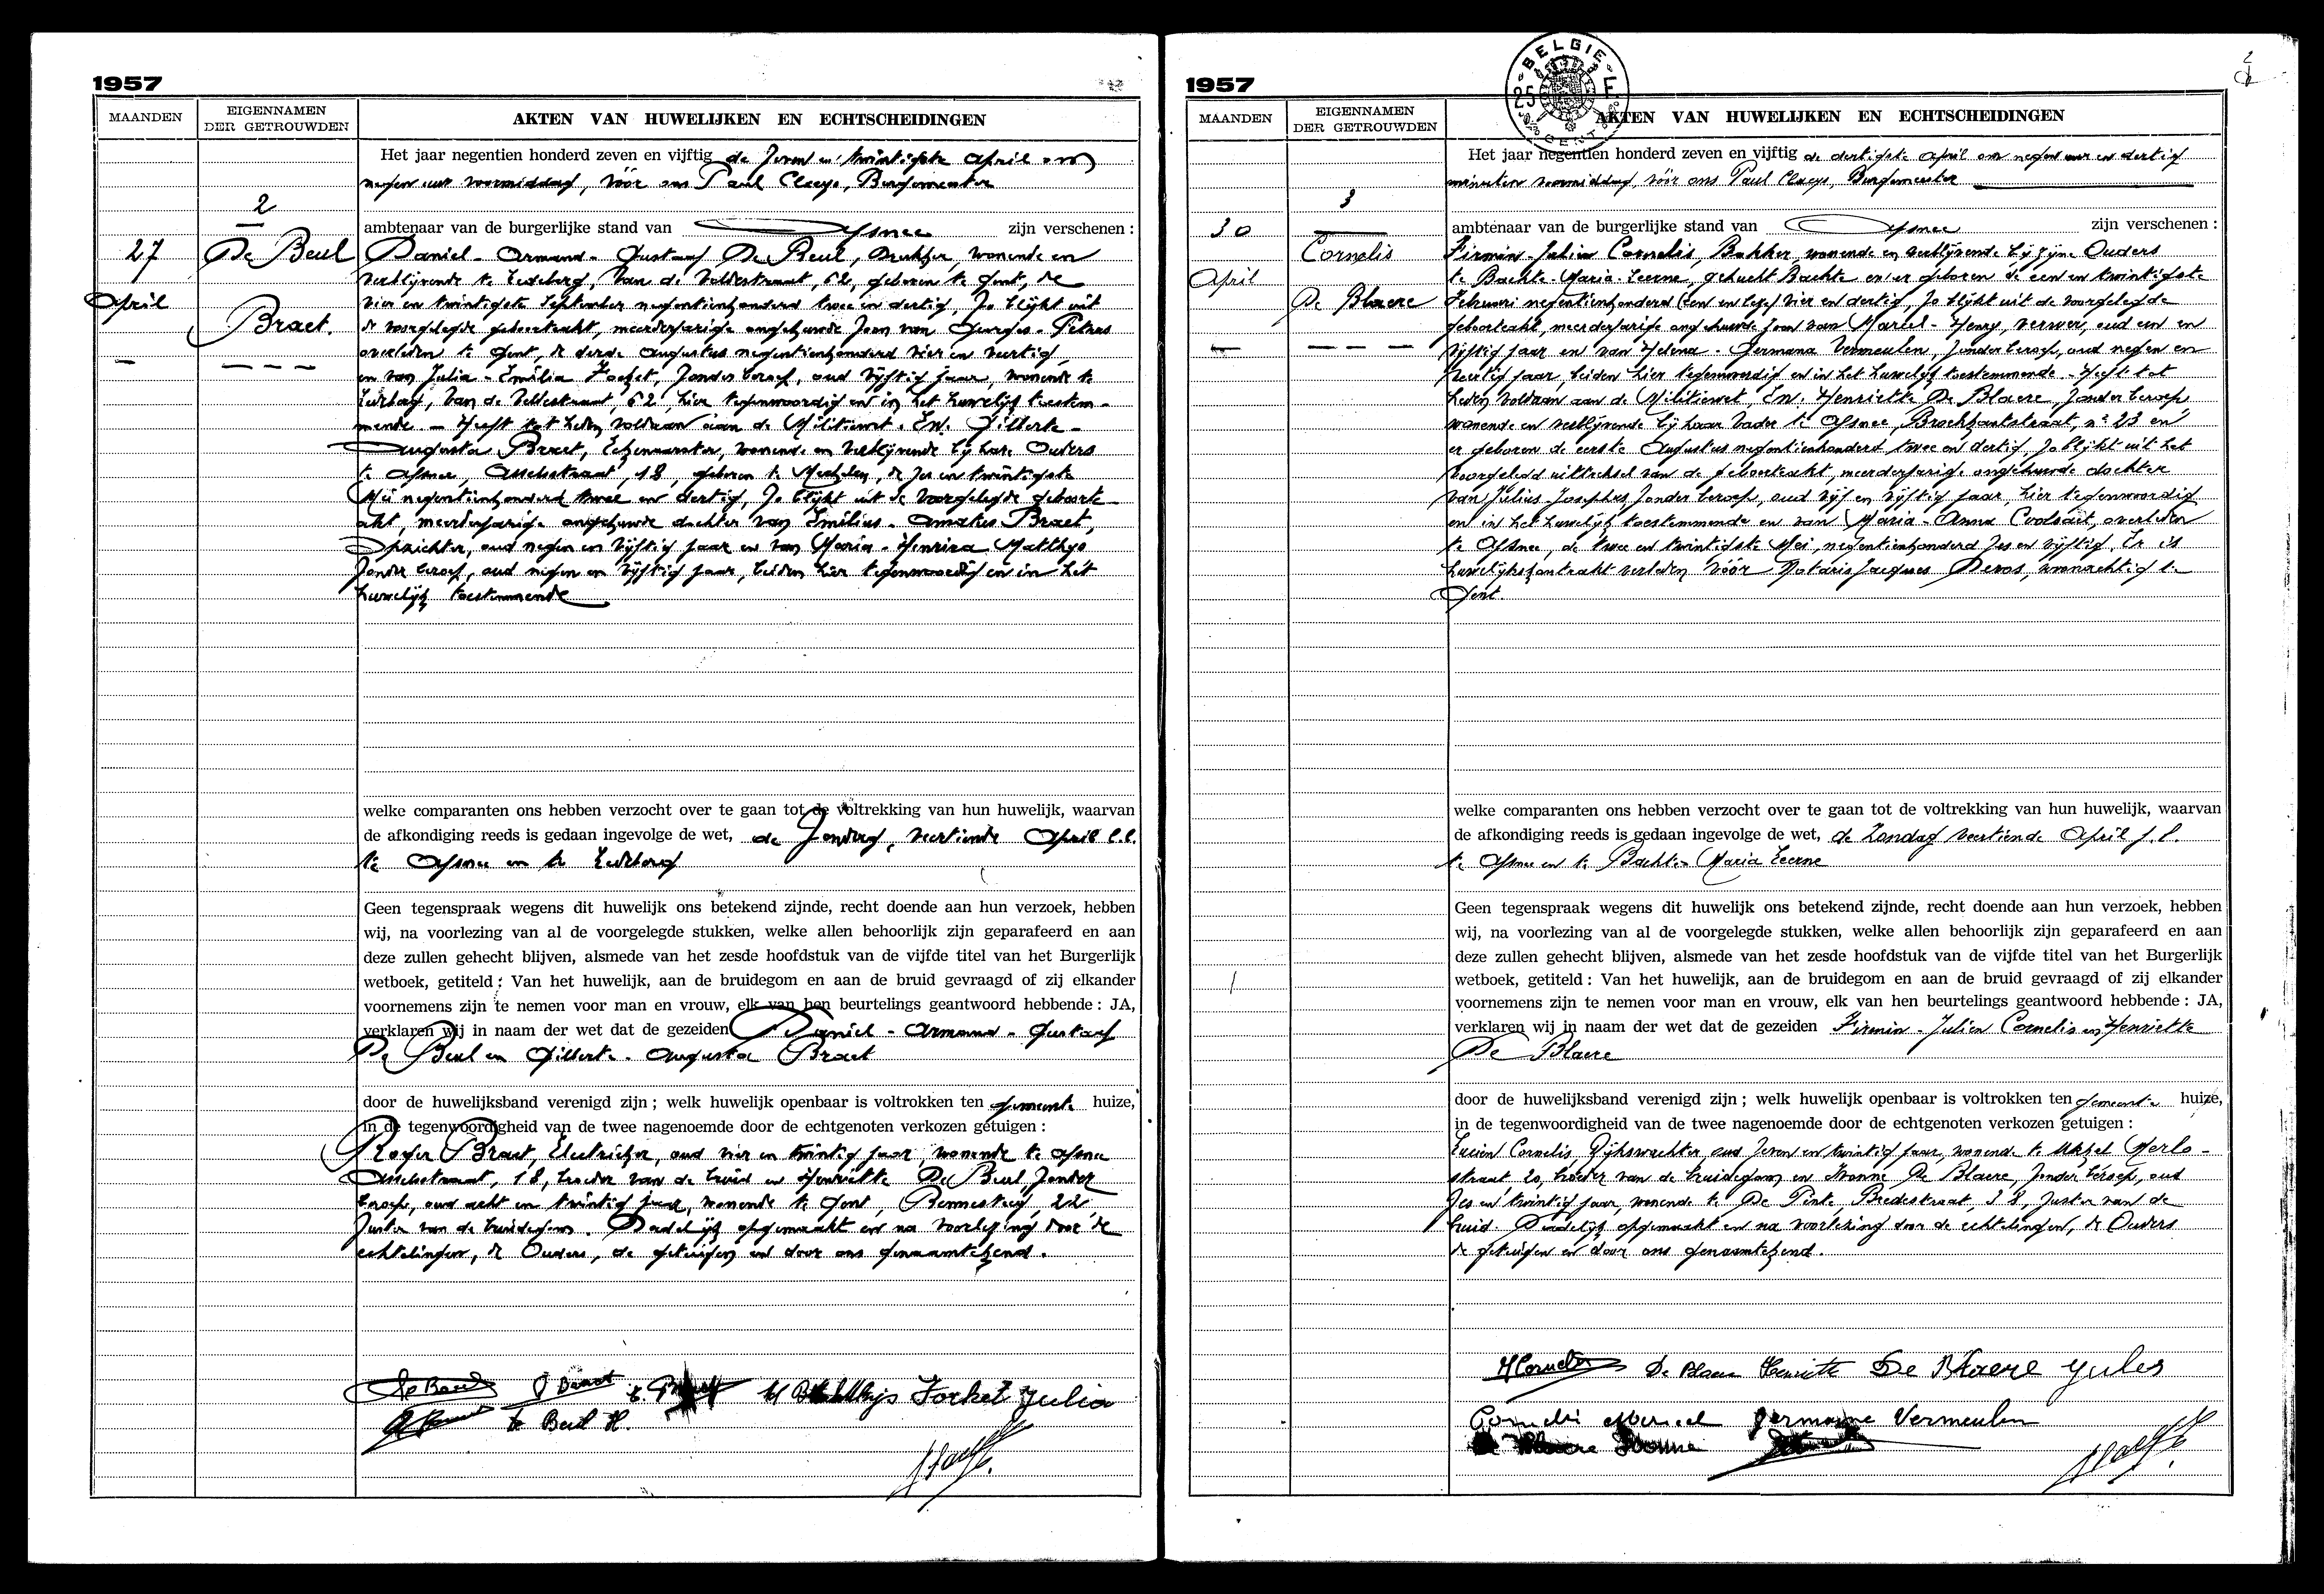 1957
MAANDEN
EIGENNAMEN
DER GETROUWDEN
AKTEN VAN HUWELIJKEN EN ECHTSCHEIDINGEN
Het jaar negentien honderd zeven en vijftig de zeven en twintigste April om
negen uur voormiddag, vóór ons Paul Claeys, Burgemeester
2
ambtenaar van de burgerlijke stand van Afsnee zijn verschenen :
27
April
De Beul
Braet.
Daniel - Armand - Gustaaf De Beul, Drukker, wonende en
verblijvende te Ledeberg, Van de Veldestraat, 62, geboren te Gent, de
vier en twintigste September negentienhonderd twee en dertig, zo blijkt uit
de voorgelegde geboorteakt, meerderjarige ongehuwde zoon van Georges - Petrus
overleden te Gent, de derde Augustus negentienhonderd vier en veertig
en van Julia - Emilia Focket, zonder beroep, oud vijftig jaar, wonende te
Ledeberg, Van de Veldestraat, 62, hier tegenwoordig en in het huwelijk toestem-
mende - Heeft tot heden voldaan aan de Militiewet. En. Gilberte -
Augusta Braet, wonende en verblijvende bij hare Ouders
te Afsnee, Asselsstraat, 18, geboren te Mechelen, de zes en twintigste
Mei negentienhonderd twee en dertig, zo blijkt uit de voorgelegde geboorte-
akt, meerderjarige ongehuwde dochter van Emilius - Amatus Braet,
Opzichter, oud negen en vijftig jaar en van Maria - Henrica Matthys
zonder beroep, oud negen en vijftig jaar, beiden hier tegenwoordig en in het
huwelijk toestemmende
welke comparanten ons hebben verzocht over te gaan tot de voltrekking van hun huwelijk, waarvan
de afkondiging reeds is gedaan ingevolge de wet, de Zondag, veertiende April l.l.
te Afsnee en te Ledeberg
Geen tegenspraak wegens dit huwelijk ons betekend zijnde, recht doende aan hun verzoek, hebben
wij, na voorlezing van al de voorgelegde stukken, welke allen behoorlijk zijn geparafeerd en aan
deze zullen gehecht blijven, alsmede van het zesde hoofdstuk van de vijfde titel van het Burgerlijk
wetboek, getiteld : Van het huwelijk, aan de bruidegom en aan de bruid gevraagd of zij elkander
voornemens zijn te nemen voor man en vrouw, elk van hen beurtelings geantwoord hebbende : JA,
verklaren wij in naam der wet dat de gezeiden Daniel - Armand - Gustaaf
De Beul en Gilberte - Augusta Braet
door de huwelijksband verenigd zijn ; welk huwelijk openbaar is voltrokken ten gemeente huize,
in de tegenwoordigheid van de twee nagenoemde door de echtgenoten verkozen getuigen :
Roger Braet, Electrieker, oud vier en twintig jaar, wonende te Afsnee
Asselsstraat, 18, broeder van de bruid en Henriette De Beul, zonder
beroep, oud acht en twintig jaar, wonende te Gent, Bennesteeg, 22,
zuster van de bruidegom. Dadelijk opgemaakt en na voorlezing door de
echtelingen, de Ouders, de getuigen en door ons genaamtekend.
De Beul G Braet E. Braet M Matthys Focket Julia
De Beul H.
1957
MAANDEN
EIGENNAMEN
DER GETROUWDEN
BELGIE
AKTEN VAN HUWELIJKEN EN ECHTSCHEIDINGEN
Het jaar negentien honderd zeven en vijftig de dertigste April om negen uur en dertig
minuten voormiddag, vóór ons Paul Claeys, Burgemeester
3
ambtenaar van de burgerlijke stand van Afsnee zijn verschenen :
30
April
Cornelis
De Blaere
Firmin - Julien Cornelis, Bakker, wonende en verblijvende bij zijne Ouders
te Bachte-Maria-Leerne, gehucht Bachte en er geboren de een en twintigste
Februari negentienhonderd (een en lees) vier en dertig, zo blijkt uit de voorgelegde
geboorteakt, meerderjarige ongehuwde zoon van Marcel - Henry, verver, oud een en
vijftig jaar en van Helena - Germana Vermeulen, zonder beroep, oud negen en
veertig jaar, beiden hier tegenwoordig en in het huwelijk toestemmende. - Heeft tot
heden voldaan aan de Militiewet, En. Henriette De Blaere, zonder beroep
wonende en verblijvende bij haar Vader te Afsnee, Broekkantstraat, n° 23 en
er geboren de eerste Augustus negentienhonderd twee en dertig, zo blijkt uit het
voorgelegd uittreksel van de geboorteakt, meerderjarige ongehuwde dochter
van Julius Josephus zonder beroep, oud vijf en vijftig jaar hier tegenwoordig
en in het huwelijk toestemmende en van Maria - Anna Coolsaet, overleden
te Afsnee, de twee en twintigste Mei, negentienhonderd zes en vijftig. Er is
huwelijkskontrakt verleden vóór Notaris Jacques Devos, woonachtig te
Gent.
welke comparanten ons hebben verzocht over te gaan tot de voltrekking van hun huwelijk, waarvan
de afkondiging reeds is gedaan ingevolge de wet, de Zondag veertiende April j.l.
te Afsnee en te Bachte-Maria Leerne
Geen tegenspraak wegens dit huwelijk ons betekend zijnde, recht doende aan hun verzoek, hebben
wij, na voorlezing van al de voorgelegde stukken, welke allen behoorlijk zijn geparafeerd en aan
deze zullen gehecht blijven, alsmede van het zesde hoofdstuk van de vijfde titel van het Burgerlijk
wetboek, getiteld : Van het huwelijk, aan de bruidegom en aan de bruid gevraagd of zij elkander
voornemens zijn te nemen voor man en vrouw, elk van hen beurtelings geantwoord hebbende : JA,
verklaren wij in naam der wet dat de gezeiden Firmin - Julien Cornelis en Henriette
De Blaere
door de huwelijksband verenigd zijn ; welk huwelijk openbaar is voltrokken ten gemeente huize,
in de tegenwoordigheid van de twee nagenoemde door de echtgenoten verkozen getuigen :
Lucien Cornelis, Rijkswachter, oud zeven en twintig jaar, wonende te Ukkel Merlo-
straat 20, broeder van de bruidegom en Ivonne De Blaere, zonder beroep, oud
zes en twintig jaar, wonende te De Pinte, Bredestraat, 38, zuster van de
bruid. Dadelijk opgemaakt en na voorlezing door de echtelingen, de Ouders
de getuigen en door ons genaamtekend.
Cornelis De Blaere Henriette De Blaere Jules
Cornelis Marcel Germaine Vermeulen
De Blaere Ivonne